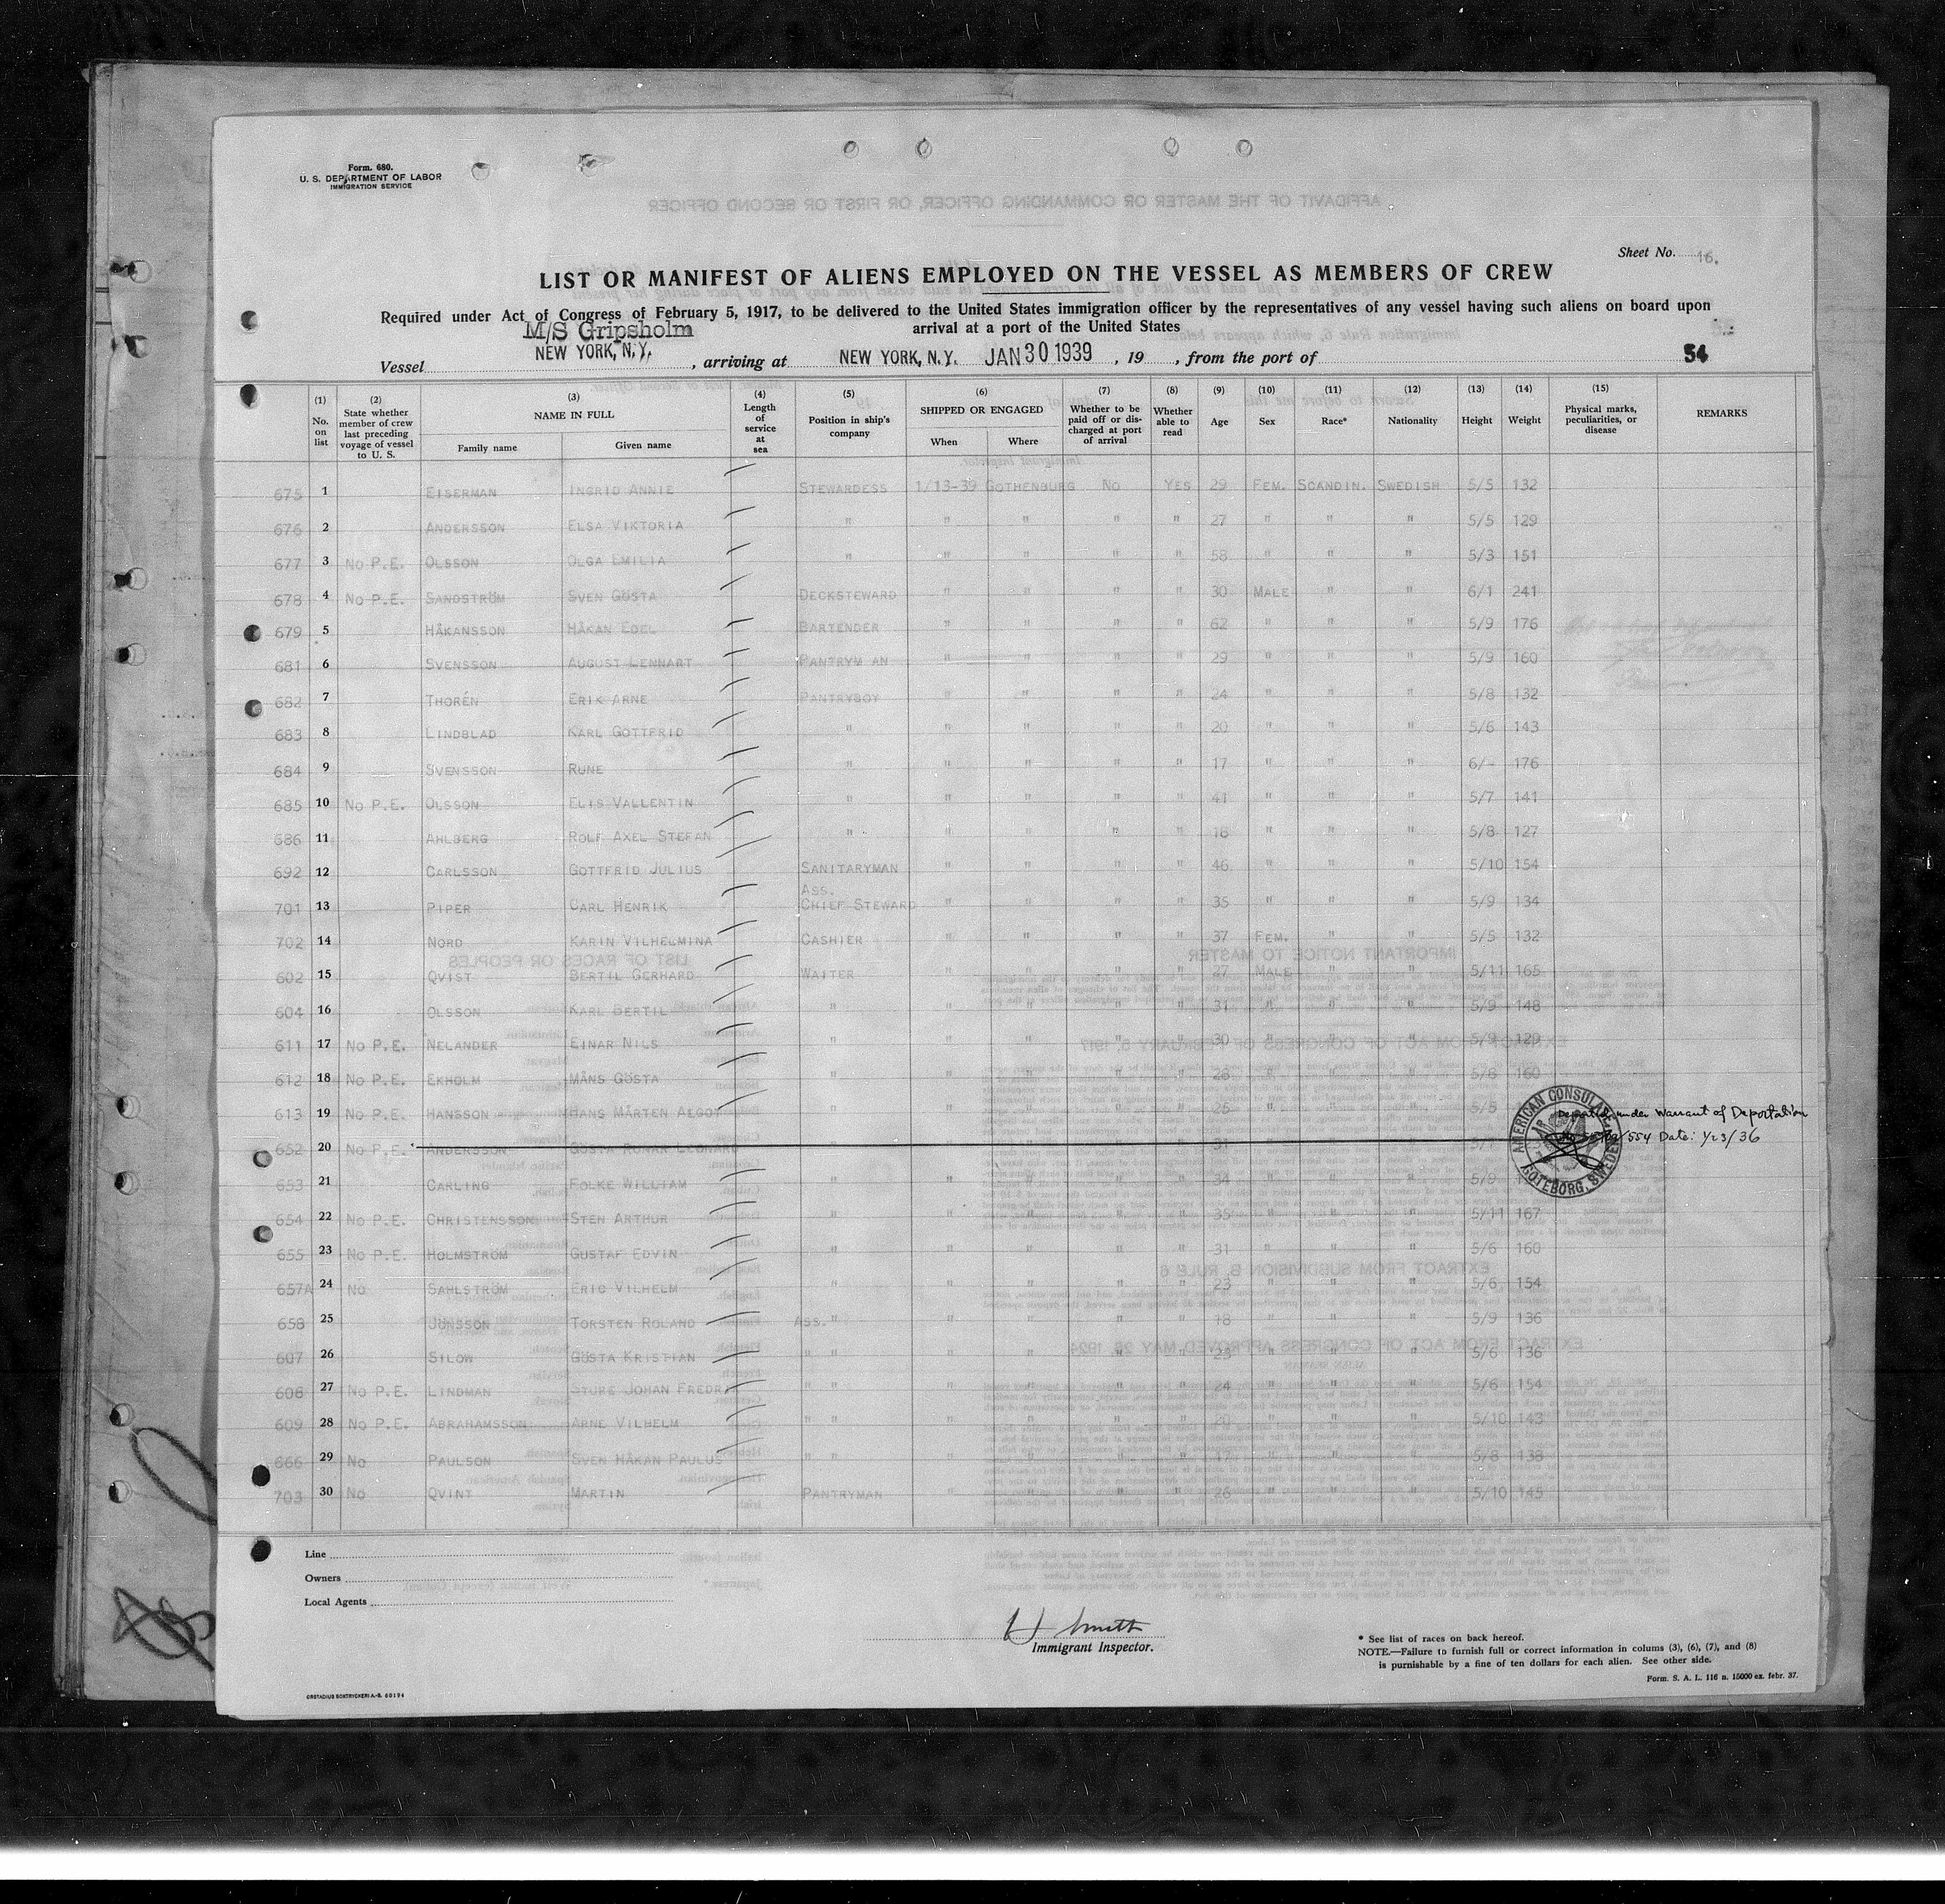 Form. 680.
U. S. DEPARTMENT OF LABOR
IMMIGRATION SERVICE
Sheet No. 16.
LIST OR MANIFEST OF ALIENS EMPLOYED ON THE VESSEL AS MEMBERS OF CREW
Required under Act of Congress of February 5, 1917, to be delivered to the United States immigration officer by the representatives of any vessel having such aliens on board upon
arrival at a port of the United States
M/S Gripsholm
Vessel NEW YORK, N.Y. , arriving at NEW YORK, N.Y. JAN 30 1939 , 19 , from the port of 54
(1) No. on list
(2) State whether member of crew last preceding voyage of vessel to U. S.
(3) NAME IN FULL
Family name Given name
(4) Length of service at sea
(5) Position in ship's company
(6) SHIPPED OR ENGAGED
When Where
(7) Whether to be paid off or discharged at port of arrival
(8) Whether able to read
(9) Age
(10) Sex
(11) Race*
(12) Nationality
(13) Height
(14) Weight
(15) Physical marks, peculiarities, or disease
REMARKS
675 1 EISERMAN INGRID ANNIE STEWARDESS 1/13-39 GOTHENBURG NO YES 29 FEM. SCANDIN. SWEDISH 5/5 132
676 2 ANDERSSON ELSA VIKTORIA " " " " " 27 " " " 5/5 129
677 3 NO P.E. OLSSON OLGA EMILIA " " " " " 58 " " " 5/3 151
678 4 NO P.E. SANDSTRÖM SVEN GÖSTA DECKSTEWARD " " " " 30 MALE " " 6/1 241
679 5 HÅKANSSON HÅKAN EDEL BARTENDER " " " " 62 " " " 5/9 176
681 6 SVENSSON AUGUST LENNART PANTRYMAN " " " " 29 " " " 5/9 160
682 7 THORÉN ERIK ARNE PANTRYBOY " " " " 24 " " " 5/8 132
683 8 LINDBLAD KARL GOTTFRID " " " " " 20 " " " 5/6 143
684 9 SVENSSON RUNE " " " " " 17 " " " 6/- 176
685 10 NO P.E. OLSSON ELIS VALLENTIN " " " " " 41 " " " 5/7 141
686 11 AHLBERG ROLF AXEL STEFAN " " " " " 18 " " " 5/8 127
692 12 CARLSSON GOTTFRID JULIUS SANITARYMAN " " " " 46 " " " 5/10 154
701 13 PIPER CARL HENRIK ASS. CHIEF STEWARD " " " " 35 " " " 5/9 134
702 14 NORD KARIN VILHELMINA CASHIER " " " " 37 FEM. " " 5/5 132
602 15 QVIST BERTIL GERHARD WAITER " " " " 27 MALE " " 5/11 165
604 16 OLSSON KARL BERTIL " " " " " 31 " " " 5/9 148
611 17 NO P.E. NELANDER EINAR NILS " " " " " 30 " " " 5/9 129
612 18 NO P.E. EKHOLM MÅNS GÖSTA " " " " " 28 " " " 5/8 160
613 19 NO P.E. HANSSON HANS MÅRTEN ALGOT " " " " " 25 " " " 5/5
Deported under Warrant of Deportation
AMERICAN CONSULATE GÖTEBORG, SWEDEN
/554 Date: 1/23/36
652 20 NO P.E. ANDERSSON GÖSTA RUNAR 31
653 21 CARLING FOLKE WILLIAM " " " " " 34 " " " 5/9
654 22 NO P.E. CHRISTENSSON STEN ARTHUR " " " " " 35 " " " 5/11 167
655 23 NO P.E. HOLMSTRÖM GUSTAF EDVIN " " " " " 31 " " " 5/6 160
657A 24 NO SAHLSTRÖM ERIC VILHELM " " " " " 23 " " " 5/6 154
658 25 JONSSON TORSTEN ROLAND ASS. " " " " " 18 " " " 5/9 136
607 26 SILOW GÖSTA KRISTIAN " " " " " " 23 " " " 5/6 136
608 27 NO P.E. LINDMAN STURE JOHAN FREDR. " " " " " " 24 " " " 5/6 154
609 28 NO P.E. ABRAHAMSSON ARNE VILHELM " " " " " " 20 " " " 5/10 143
666 29 NO PAULSON SVEN HÅKAN PAULUS " " " " " " 17 " " " 5/8 138
703 30 NO QVINT MARTIN PANTRYMAN " " " " 26 " " " 5/10 145
Line
Owners
Local Agents
H Smith
Immigrant Inspector.
* See list of races on back hereof.
NOTE.—Failure to furnish full or correct information in colums (3), (6), (7), and (8)
is purnishable by a fine of ten dollars for each alien. See other side.
Form. S. A. L. 116 n. 15000 ex. febr. 37.
ORSTADIUS BOKTRYCKERI A.-B. 60194